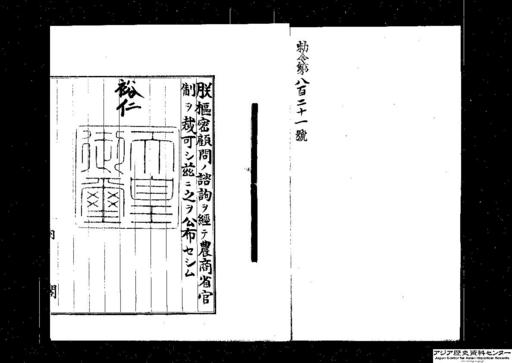 勅令第八百二十一號
朕樞密顧問ノ諮詢ヲ經テ農商省官
制ヲ裁可シ茲ニ之ヲ公布セシム
裕仁
天皇
御璽
内閣
アジア歴史資料センター
Japan Center for Asian Historical Records